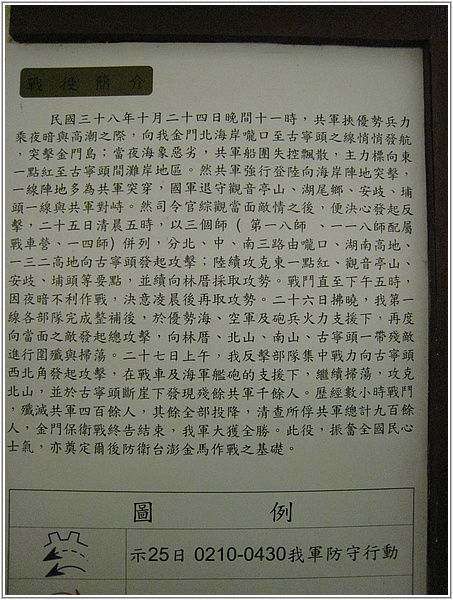 戰役簡介
民國三十八年十月二十四日晚間十一時，共軍挾優勢兵力
乘夜暗與高潮之際，向我金門北海岸嚨口至古寧頭之線悄悄發航
，突擊金門島；當夜海象惡劣，共軍船團失控飄散，主力標向東
一點紅至古寧頭間灘岸地區。然共軍強行登陸向海岸陣地突擊，
一線陣地多為共軍突穿，國軍退守觀音亭山、湖尾鄉、安歧、埔
頭一線與共軍對峙。然司令官綜觀當面敵情之後，便決心發起反
擊，二十五日清晨五時，以三個師（第一八師、一一八師配屬
戰車營、一四師）併列，分北、中、南三路由嚨口、湖南高地、
一三二高地向古寧頭發起攻擊；陸續攻克東一點紅、觀音亭山、
安歧、埔頭等要點，並續向林厝採取攻勢。戰鬥直至下午五時，
因夜暗不利作戰，決意凌晨後再取攻勢。二十六日拂曉，我第一
線各部隊完成整補後，於優勢海、空軍及砲兵火力支援下，再度
向當面之敵發起總攻擊，向林厝、北山、南山、古寧頭一帶殘敵
進行圍殲與掃蕩。二十七日上午，我反擊部隊集中戰力向古寧頭
西北角發起攻擊，在戰車及海軍艦砲的支援下，繼續掃蕩，攻克
北山，並於古寧頭斷崖下發現殘餘共軍千餘人。歷經數小時戰鬥
，殲滅共軍四百餘人，其餘全部投降，清查所俘共軍總計九百餘
人，金門保衛戰終告結束，我軍大獲全勝。此役，振奮全國民心
士氣，亦奠定爾後防衛台澎金馬作戰之基礎。
圖例
示25日 0210-0430我軍防守行動